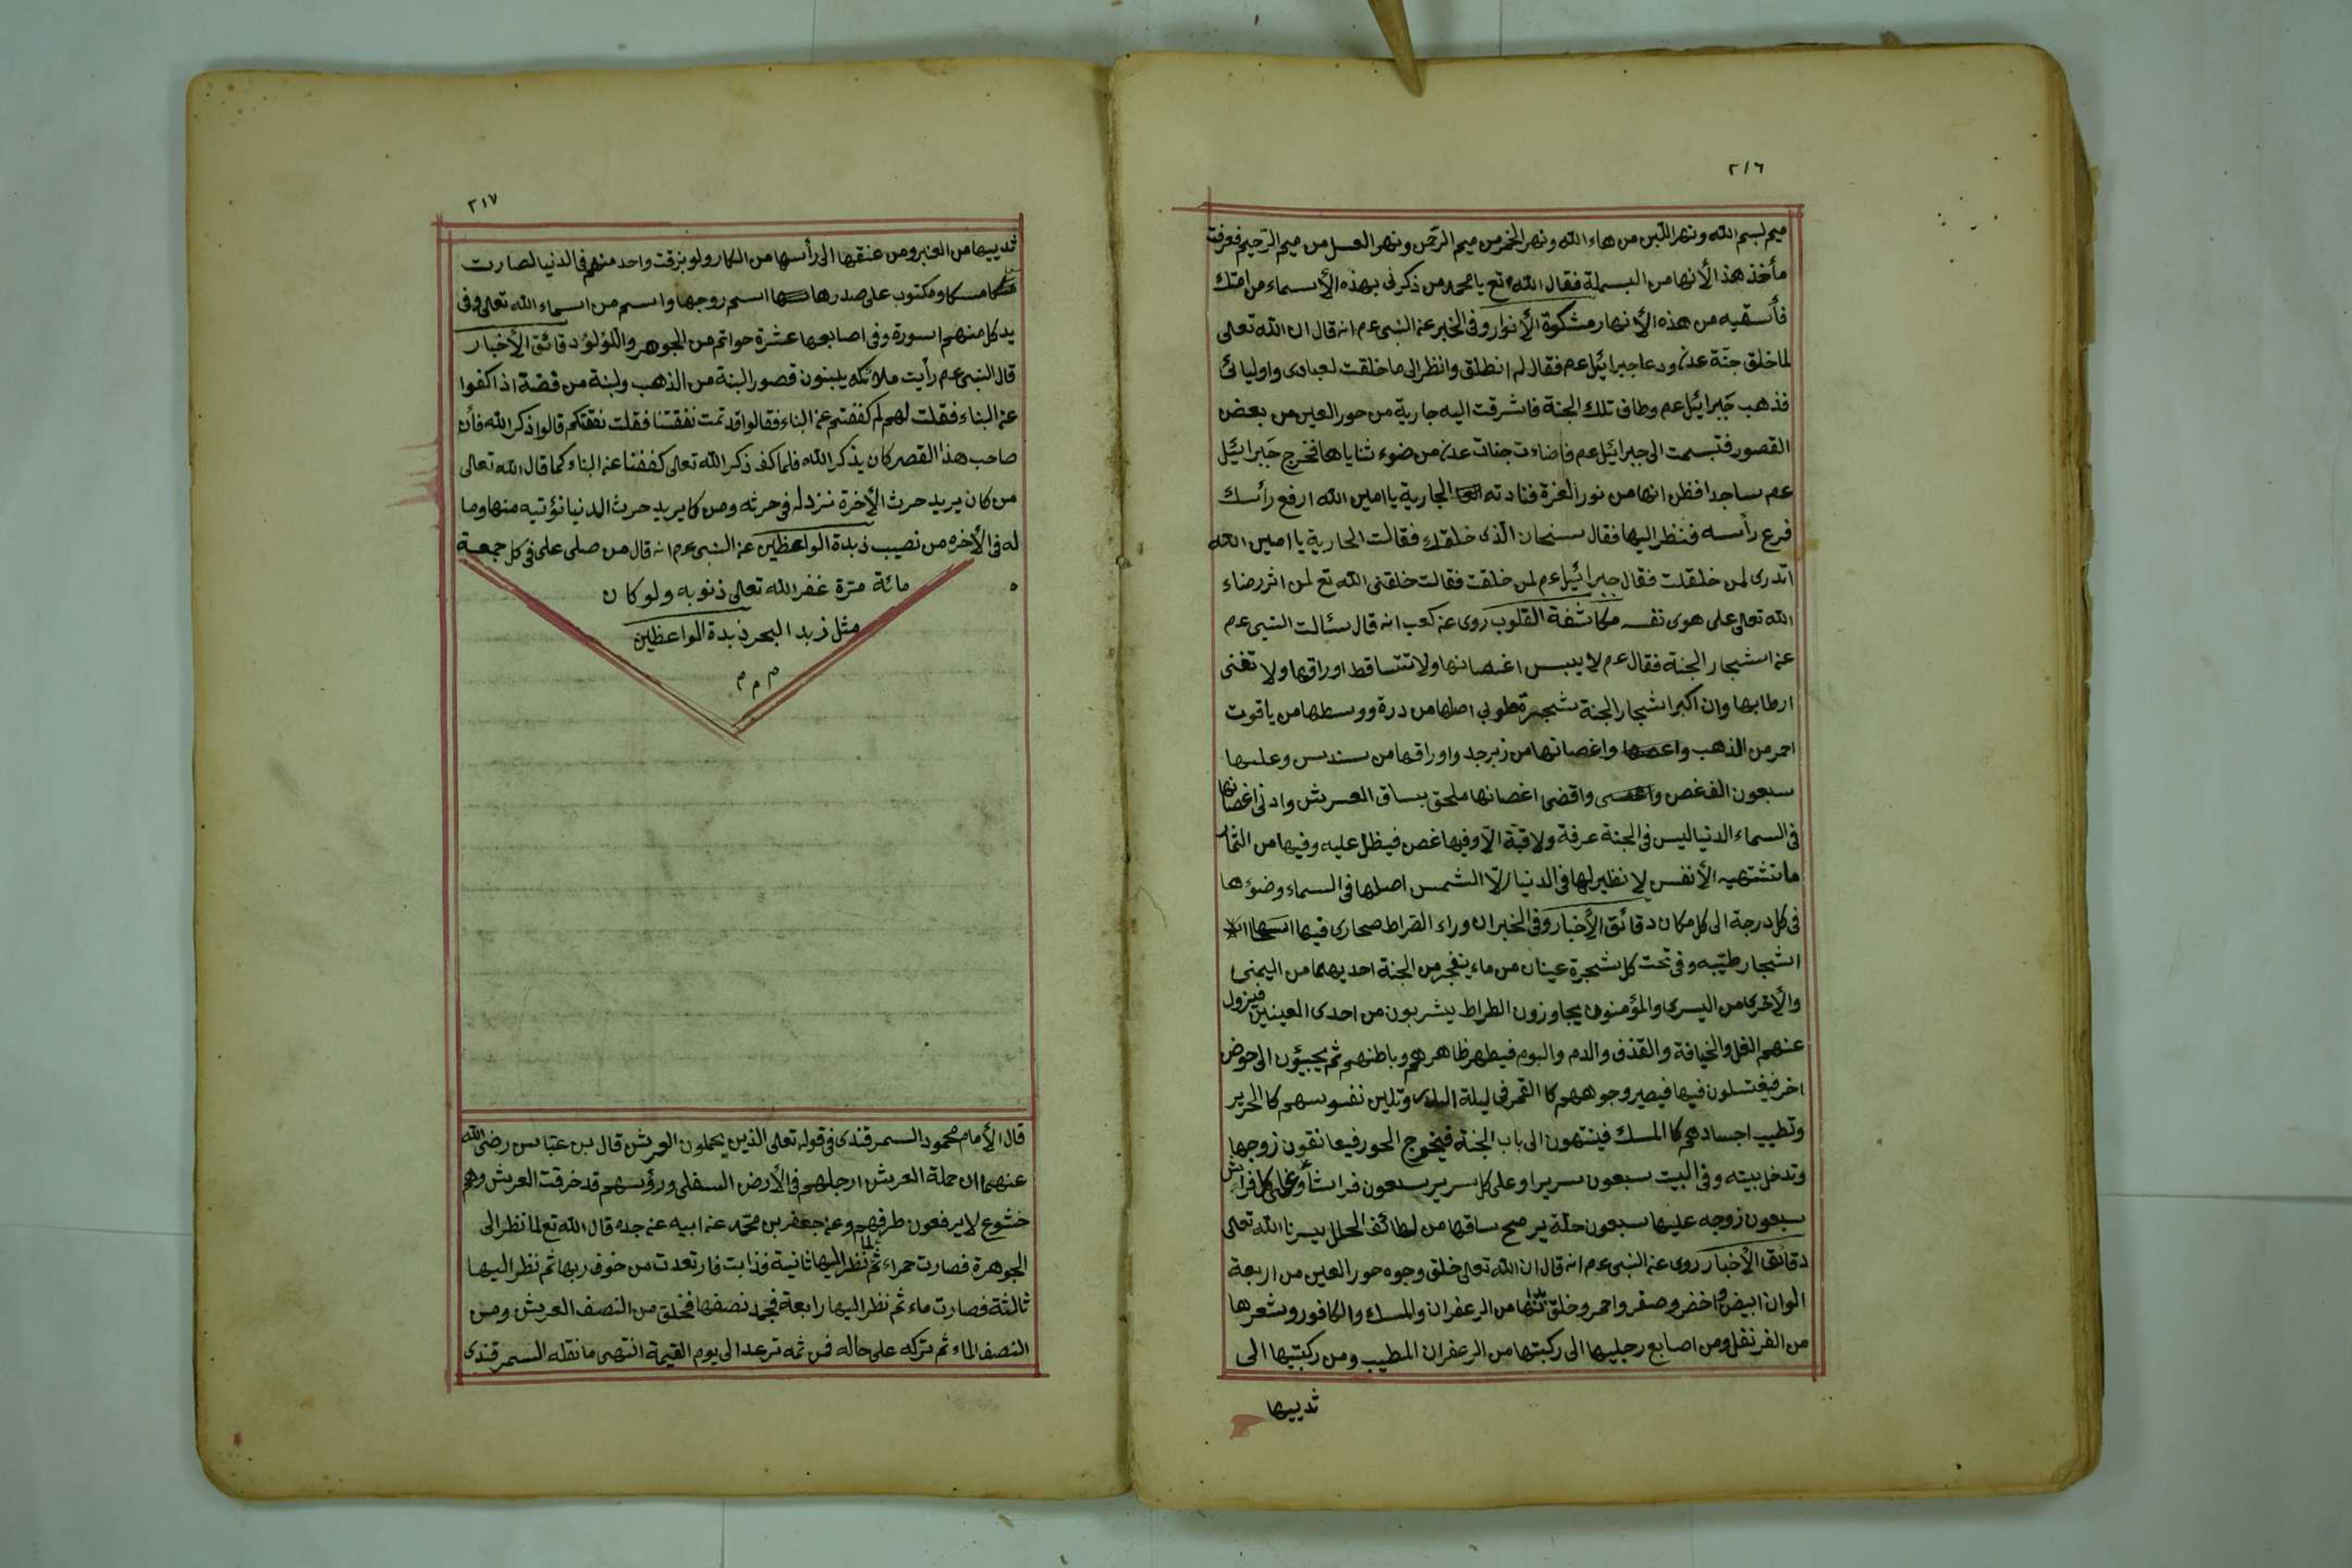 ٢١٦
ميم لبسم الله ونهر اللبن من هاء الله ونهر الخمر من ميم الرحمن ونهر العسل من ميم الرحيم فعرفت
مأخذ هذ الأنها من البسملة فقال الله تع يا محمد من ذكرنى بهذه الأسماء من امتك
فأسقيه من هذه الأنهار مشكوة الأنوار وفى الخبر عنه النبى عم انه قال ان الله تعالى
لما خلق جنة عدن ودعا جبرائيل عم فقال له انطلق وانظر الى ما خلقت لعبادى واوليائى
فذهب جبرائيل عم وطاف تلك الجنة فاشرقت اليه جارية من حور العين من بعض
القصور فتبسمت الى جبرائيل عم فاضاءت جنات عدن من ضوء ثناياها فخرج جبرائيل
عم ساجدا فظن انها من نور العزة فنادته الجارية يا امين الله ارفع رأسك
فرع رأسه فنظر اليها فقال سبحان الذى خلقك فقالت الجارية يا امين الله
اتدرى لمن خلقت فقال جبرائيل عم لمن خلقت فقالت خلقنى الله تع لمن اثر رضاء
الله تعالى على هوى نفسه مكاشفة القلوب روى عنه كعب انه قال سئالت النبى عم
عنه اشجار الجنة فقال عم لا ييبس اغصانها ولا تتساقط اوراقها ولا تغنى
ارطابها وان اكبر اشجار الجنة شجرة طوبى اصلها من درة ووسطها من ياقوت
احمر من الذهب واغصانها من زبرجد واوراقها من سندس وعليها
سبعون الف غصن واقضى اغصانها ملحق بساق العرش وادنى اغصانها
فى السماء الدنيا ليس فى الجنة عرفة ولا قبة الا وفيها غصن فيظل عليه وفيها من الثمار
ما تشتهيه الأنفس لا نظير لها فى الدنيا الا الشمس اصلها فى السماء وضوءها
فى كل درجة الى كل مكان دقائق الأخبار وفى الخبر ان وراء الصراط صحارى فيها
اشجار طيبه وفى تحت كل شجرة عينان من ماء ينفجر من الجنة احديهما من اليمنى
والأخرى من اليسرى والمؤمنون يجاوزون الطراط يشربون من احدى العينين فيزول
عنهم الغل والخيافة والقذف والدم والبوم فيطهر ظاهرهم وباطنهم ثم يجيئون الى حوض
اخر فيغتسلون فيها فيصير وجوههم كا القمر فى ليلة البدر وتلين نفوسهم كا الحرير
وتطيب اجسادهم كا المسك فينتهون الى باب الجنة فيخرج الحور فيعانقون زوجها
وتدخل بيته وفى البيت سبعون سريرا وعلى كل سرير سبعون فراشا وعلى كل فراش
سبعون زوجه عليها سبعون حلة ير مح ساقها من لطائف الحلل يسرنا الله تعالى
دقائق الأخبار روى عنه النبى عم انه قال ان الله تعالى خلق وجوه حور العين من اربعة
الوان ابيض و اخضر وصفر واحمر وخلق بدنها من الزعفران والمسك والكافور وشعرها
من القرنفل ومن اصابع رجليها الى ركبتها من الزعفران المطيب ومن ركبتيها الى
ثدييها
٢١٧
ثدييها من العنبر ومن عنقها الى رأسها من الكار ولو بزقت واحد منهم فى الدنيا لصارت
مسكا ومكتوب على صدرها اسم زوجها واسم من اسماء الله تعالى وفى
يد كل منهم اسورة وفى اصابعها عشرة حواتم من الجوهر واللؤلؤ دقائق الأخبار
قال النبى عم رأيت ملائكه يبنون قصور البنة من الذهب ولبنة من فضة اذا كفوا
عنه البناء فقلت لهم لم كففتم عنه البناء فقالوا قد تمت نفقتنا فقلت نفقتكم قالوا ذكر الله فأن
صاحب هذا القصر كان يذكر الله فلما كف ذكر الله تعالى كففنا عنه البناء كما قال الله تعالى
من كان يريد حرث الأخرة نزد له فى حرثه ومن كا يريد حرث الدنيا نؤتيه منها وما
له فى الأخره من نصيب زبدة الواعظين عنه النبى عم انه قال من صلى على فى كل جمعة
مائة مرة غفر الله تعالى ذنوبه ولو كان
مثل زبد البحر زبدة الواعظين
م م م
قال الأمام محمود السمرقندى فى قوله تعالى الذين يحملون العرش قال بن عباس رضى الله
عنهما ان حملة العرش ارجلهم فى الأرض السفلى ورؤسهم قد خرقت العرش وهم
خشوع لا يرفعون طرفهم وعنه جعفر بن محمد عنه ابيه عنه جده قال الله تع لما نظر الى
الجوهرة فصارت حمراء ثم نظر اليها ثانية فذابت فارتعدت من خوف ربها ثم نظر اليها
ثالثة فصارت ماء ثم نظر اليها رابعة فجمد نصفها فخلق من النصف العرش ومن
النصف الماء ثم تركه على حاله فمن ثمه ترعد الى يوم القيمة انتهى ما نقله السمرقندى